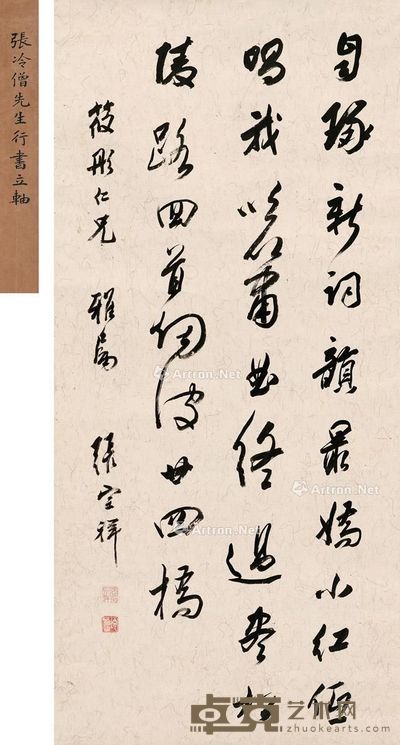 自琢新詞韻最嬌小紅低
唱我吹簫曲終過盡松
陵路回首烟波廿四橋
筱彤仁兄 雅屬 張宗祥
張冷僧先生行書立軸
Artron.Net
Artron.Net
Artron.Net
Artron.Net
卓克艺术网
www.zhuokearts.com